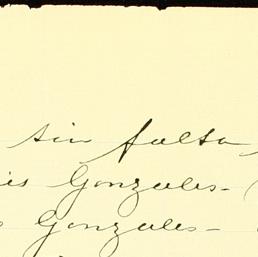 sin falta,
is Gonzales - (
s Gonzales -